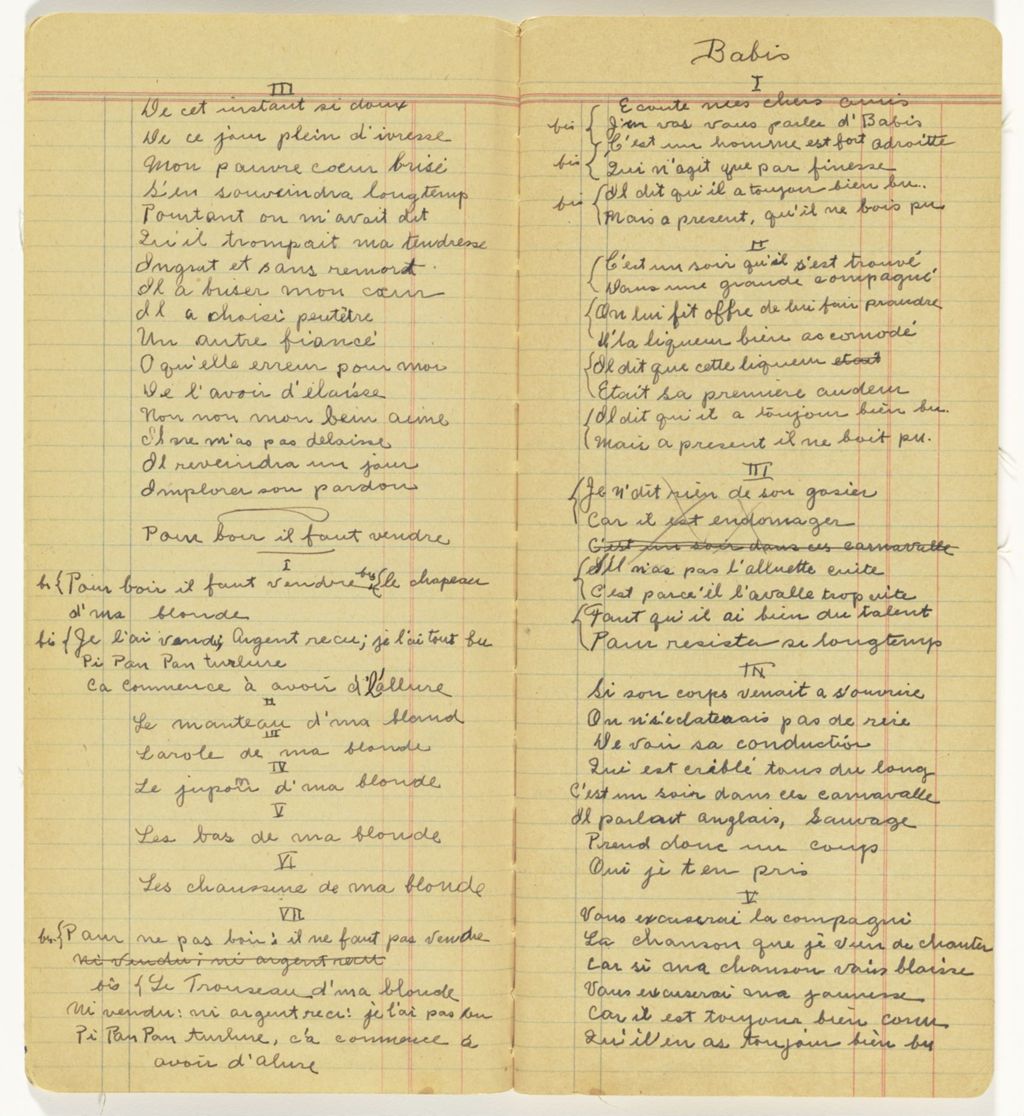 III
De cet instant si doux
De ce jour plein d'ivresse
Mon pauvre coeur brisé
S'en souveindra longtemp
Pourtant on m'avait dit
Qu'il trompait ma tendresse
Ingrat et sans remort.
Il a buser mon coeur
Il a choisi peutêtre
Un autre fiancé
O qu'elle erreur pour moi
De l'avoir d'élaisse
Non non mon bein aimé
Il ne m'as pas delaisse
Il reveindra un jour
Implorer son pardon
Pour boir il faut vendre
I
bis {Pour boir il faut vendre bis {le chapeau
d'ma blonde
bis {Je l'ai vendi, Argent recu; je l'ai tout bu
Pi Pan Pan turlure
Ca commence à avoir d'l'allure
II
Le manteau d'ma bland
III
Larole de ma blonde
IV
Le jupon d'ma blonde
V
Les bas de ma blonde
VI
Les chaussure de ma blonde
VII
bis {Pour ne pas boir: il ne faut pas vendre
ni vendu; ni argent recu
bis {Le Trouseau d'ma blonde
Ni vendu: ni argent recu: je l'ai pas bu
Pi Pan Pan turlure, c'a commence à
avoir d'alure
Babis
I
Ecoute mes chers amis
bis {J'm vas vous parler d'Babis
C'est un homme est fort adroitte
bis {Qui n'agit que par finesse
bis {Il dit qu'il a toujour bien bu..
Mais a present, qu'il ne bois pu
II
{C'est un soir qu'il s'est trouvé
Dans une grande compagné
{On lui fit offre de lui fair prandre
D'la liqueur bien accomodé
{Il dit que cette liqueur etait
Etait sa première audeur
{Il dit qu'il a toujour bièn bu..
Mais a present il ne boit pu.
III
{Je n'dit rièn de son gosier
Car il est endomager
C'est un soir dans ces carnavalle
{S'il n'as pas l'alluette cuite
C'est parce'il l'avalle trop vite
{Faut qu'il ai bien du talent
Pour resister si longtemp
IV
Si son corps venait a s'ouvrire
On n's'eclaterais pas de reire
De voir sa conduction
Qui est crèblé tous du long
C'est un soir dans ces carnavalle
Il parlait anglais, Sauvage
Prend donc un coup
Oui jè t en pris
V
Vous excuserai la compagni
La chanson que jè vien de chanter
Car si ma chanson vous blaisse
Vous excuserai ma jeunesse
Car il est toujour bièn conu
Qu'il en as toujour bièn bu